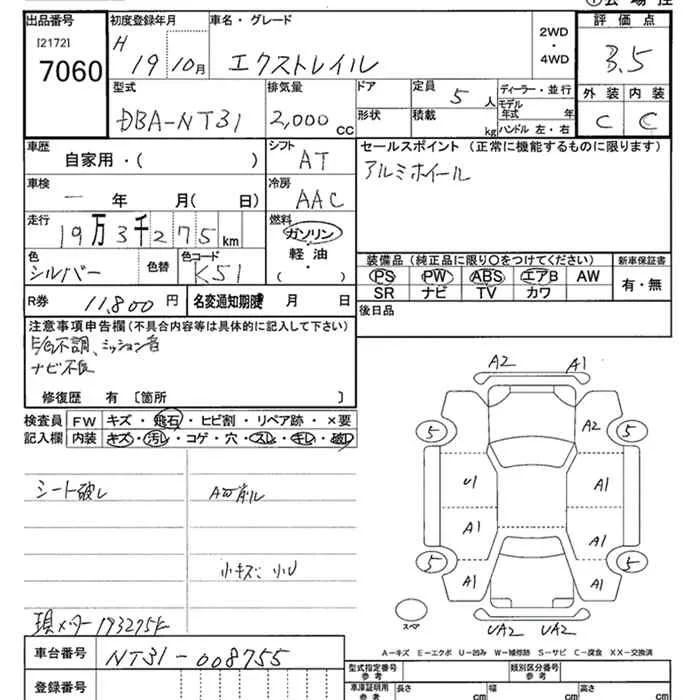 出品番号 初度登録年月 車名・グレード 2WD・4WD 評価点
[2172] H 19 10月 エクストレイル 3.5
7060
型式 排気量 ドア 定員 5人 ディーラー・並行 外装 内装
DBA-NT31 2,000 cc 形状 積載 kg モデル年式 年 C C
ハンドル 左・右
車歴 自家用・( ) シフト AT セールスポイント (正常に機能するものに限ります)
アルミホイール
車検 一 年 月( 日) 冷房 AAC
走行 19万3千275km 燃料 ガソリン・軽油・( )
色 シルバー 色替 色コード K51
装備品 (純正品に限り○をつけてください) 新車保証書
PS PW ABS エアB AW 有・無
SR ナビ TV カワ
R券 11,800円 名変通知期限 月 日 後日品
注意事項申告欄(不具合内容等は具体的に記入して下さい)
E/G不調、ミッション音
ナビ不良
修復歴 有 〔箇所 〕
検査員 FW キズ・飛石・ヒビ割・リペア跡・×要
記入欄 内装 キズ・汚レ・コゲ・穴・スレ・キレ・破レ
シート破レ A下削ル
小キズ、小U
現メーター193275k
車台番号 NT31-008755
登録番号
A2 A1
5 A2 5
U1 A1
A1 A1
5 A1 A1 5
スペア UA2 UA2
A-キズ E-エクボ U-凹み W-補修跡 S-サビ C-腐食 XX-交換済
型式指定番号 参考 類別区分番号 参考
車庫証明用 参考 長さ cm 幅 cm 高さ cm